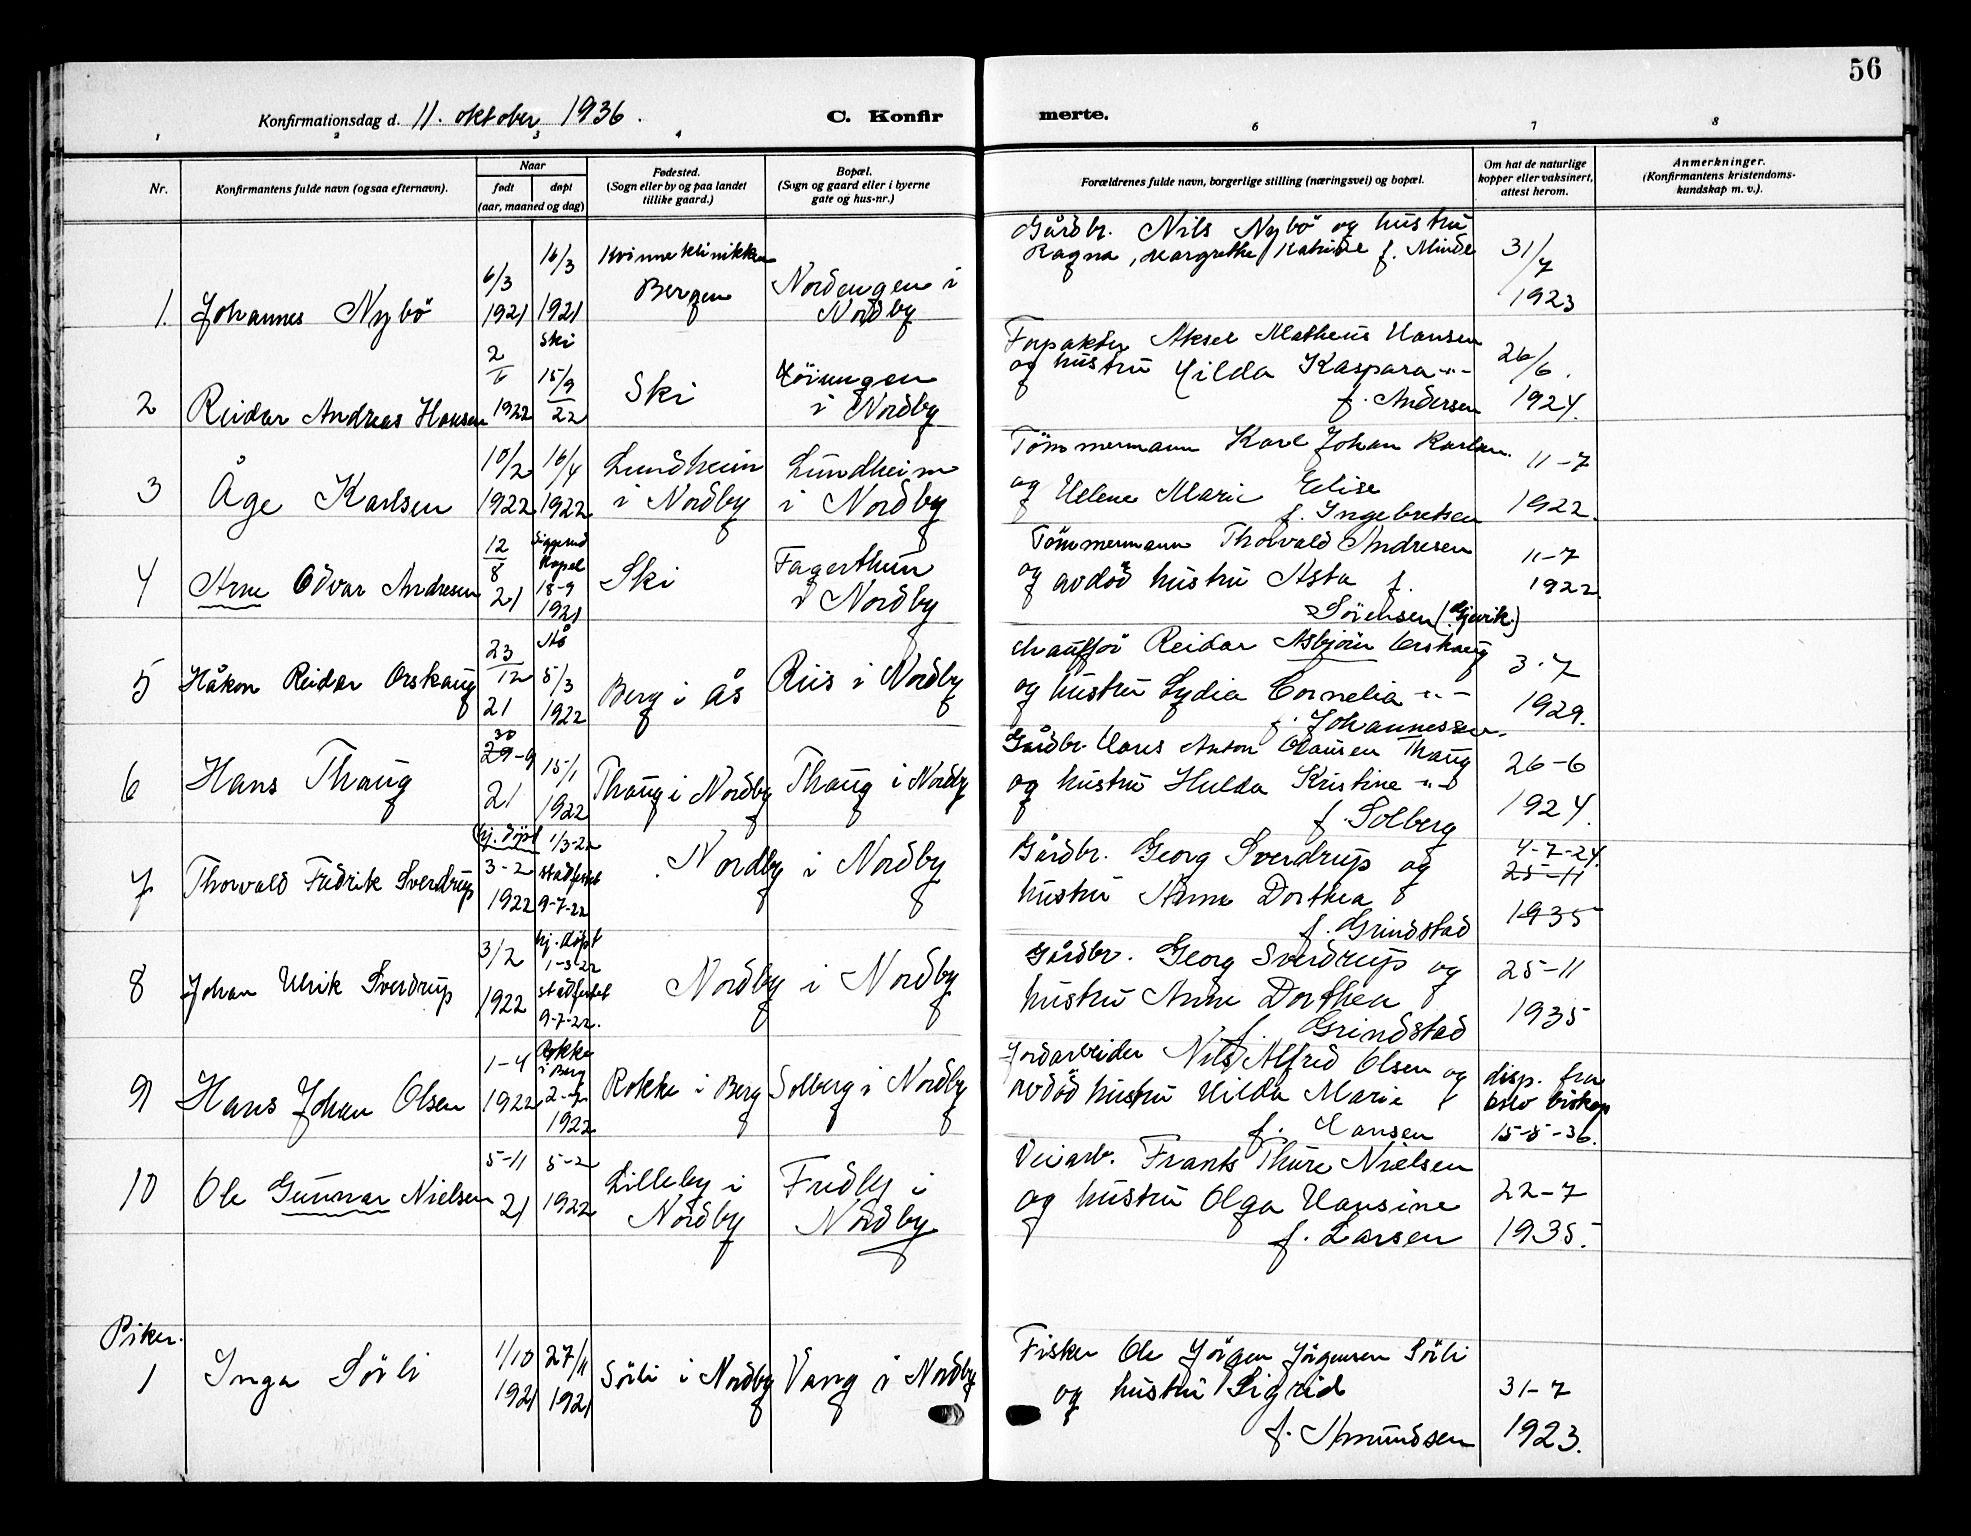 56
Konfirmationsdag d. 11. oktober 1936.
C. Konfirmerte.
1 2 3 4 6 7 8
Nr.
Konfirmantens fulde navn (ogsaa efternavn).
Naar
født
døpt
(aar, maaned og dag)
Fødested.
(Sogn eller by og paa landet
tillike gaard.)
Bopæl.
(Sogn og gaard eller i byerne
gate og hus-nr.)
Forældrenes fulde navn, borgerlige stilling (næringsvei) og bopæl.
Om hat de naturlige
kopper eller vaksinert,
attest herom.
Anmerkninger.
(Konfirmantens kristendoms-
kundskap m. v.).
1. Johannes Nybö
6/3
1921
16/3
1921
Kvinneklinikken
Bergen
Nordengen i
Nordby
Gårdbr. Nils Nybö og hustru
Ragna, Margrethe Katrine f. Minde
31/7
1923
2 Reidar Andreas Hansen
2/6
1922
Ski
15/9
22
Ski
i Nordby
Forpakter Aksel Matheus Hansen
og hustru Hilda Kaspara -"-
f. Andersen
26/6.
1924.
3 Åge Karlsen
10/2
1922
16/4
1922
Lundheim
i Nordby
Lundheim
i Nordby
Tömmermann Karl Johan Karlsen.
og Helene Marie Elise
f. Ingebretsen
11-7
1922.
4 Arne Odvar Andresen
12/8
21
Siggerud
Kapel
18-9
1921
Ski
Fagerthun
i Nordby
Tömmermann Thorvald Andresen
og avdöd hustru Asta f.
Sörensen (Gjervik.)
11-7
1922.
5 Håkon Reidar Orskaug
23/12
21
Ås
5/3
1922
Berg i Ås
Riis i Nordby
chaufför Reidar Asbjörn Orskaug
og hustru Lydia Cornelia -"-
f. Johannessen.
3.7
1929.
6 Hans Thaug
30
29-9
21
15/1
1922
Thaug i Nordby
Thaug i Nordby
Gårdbr. Hans Anton Clausen Thaug
og hustru Hulda Kristine -"-
f. Solberg
26-6
1924.
7 Thorvald Fredrik Sverdrup
hj. döpt
3-2
1922
1/3-22
stadfestet
9-7-22
Nordby i Nordby
Gårdbr. Georg Sverdrup og
hustru Anne Dorthea
f. Grindstad
4-7-24.
25-11
1935
8 Johan Ulrik Sverdrup
3/2
1922
hj. döpt
1-3-22
stadfestet
9-7-22.
Nordby i Nordby
Gårdbr. Georg Sverdrup og
hustru Anne Dorthea
f. Grindstad
25-11
1935
9 Hans Johan Olsen
1-4
1922
Rokke
i Berg
1922
Rokke i Berg
Solberg i Nordby
Jordarbeider Nils Alfred Olsen og
avdöd hustru Hilda Marie
f. Hansen
disp. fra
Oslo biskop
15-8-36.
10 Ole Gunnar Nielsen
5-11
21
5-2
1922
Lilleby i
Nordby
Fredly i
Nordby
Veiarb. Frants Thure Nielsen
og hustru Olga Hansine
f. Larsen
22-7
1935.
Piker.
1 Inga Sörli
1/10
1921
27/11
1921
Sörli i Nordby
Vang i Nordby
Fisker Ole Jörgen Jörgensen Sörli
og hustru Sigrid
f. Amundsen
31-7
1923.